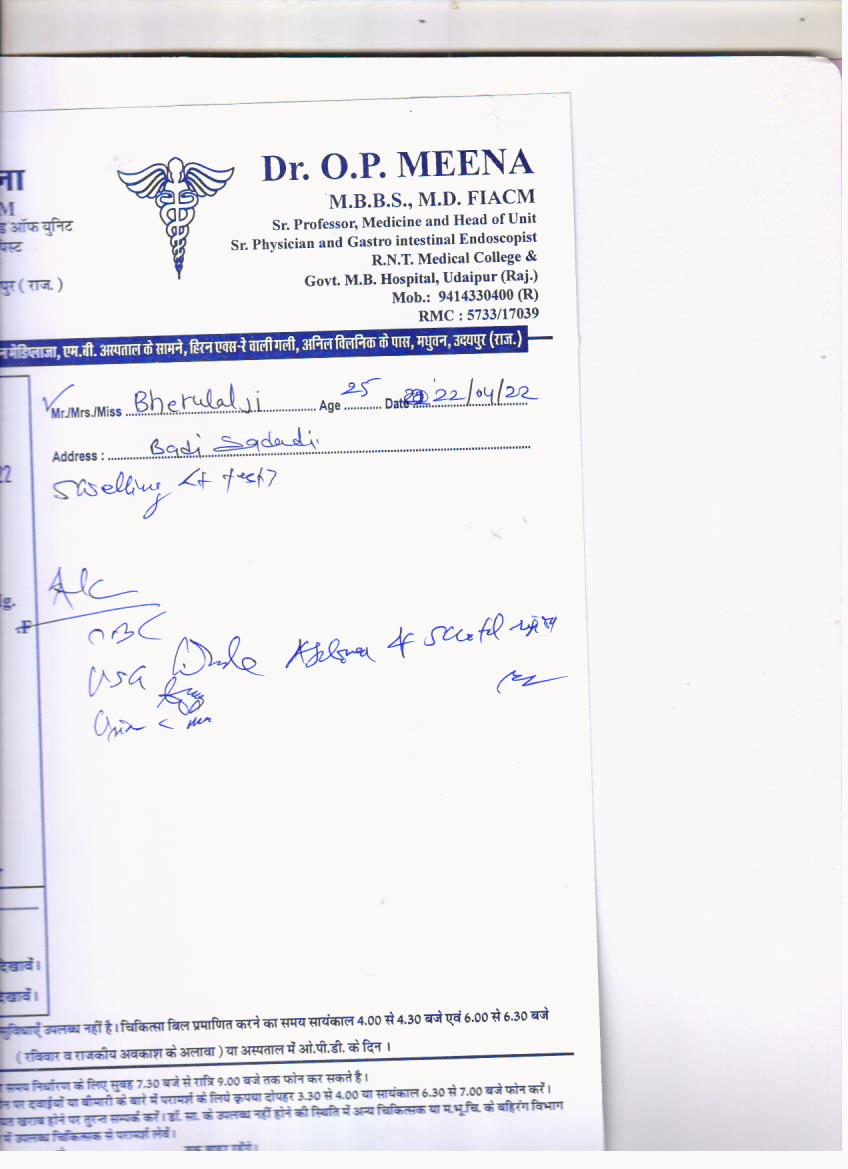 ना
M
ड ऑफ युनिट
पुर ( राज. )
Dr. O.P. MEENA
M.B.B.S., M.D. FIACM
Sr. Professor, Medicine and Head of Unit
Sr. Physician and Gastro intestinal Endoscopist
R.N.T. Medical College &
Govt. M.B. Hospital, Udaipur (Raj.)
Mob.: 9414330400 (R)
RMC : 5733/17039
मेडिप्लाजा, एम.बी. अस्पताल के सामने, हिरन एक्स-रे वाली गली, अनिल क्लिनिक के पास, मधुवन, उदयपुर (राज.)
Mr./Mrs./Miss Bherulal ji Age 25 Date 22/04/22
Address : Badi Sadadi
Swelling Lt
CBC
USG Whole Abdomen & Scrotal
देखावें।
देखावें।
सुविधाएँ उपलब्ध नहीं है। चिकित्सा बिल प्रमाणित करने का समय सायंकाल 4.00 से 4.30 बजे एवं 6.00 से 6.30 बजे
( रविवार व राजकीय अवकाश के अलावा ) या अस्पताल में ओ.पी.डी. के दिन ।
समय निर्धारण के लिए सुबह 7.30 बजे से रात्रि 9.00 बजे तक फोन कर सकते है।
पर दवाईयों या बीमारी के बारे में परामर्श के लिये कृपया दोपहर 3.30 से 4.00 या सायंकाल 6.30 से 7.00 बजे फोन करें।
खराब होने पर तुरन्त सम्पर्क करें। डॉ. सा. के उपलब्ध नहीं होने की स्थिति में अन्य चिकित्सक या म.भू.चि. के बहिरंग विभाग
में उपलब्ध चिकित्सक से परामर्श लेवें।